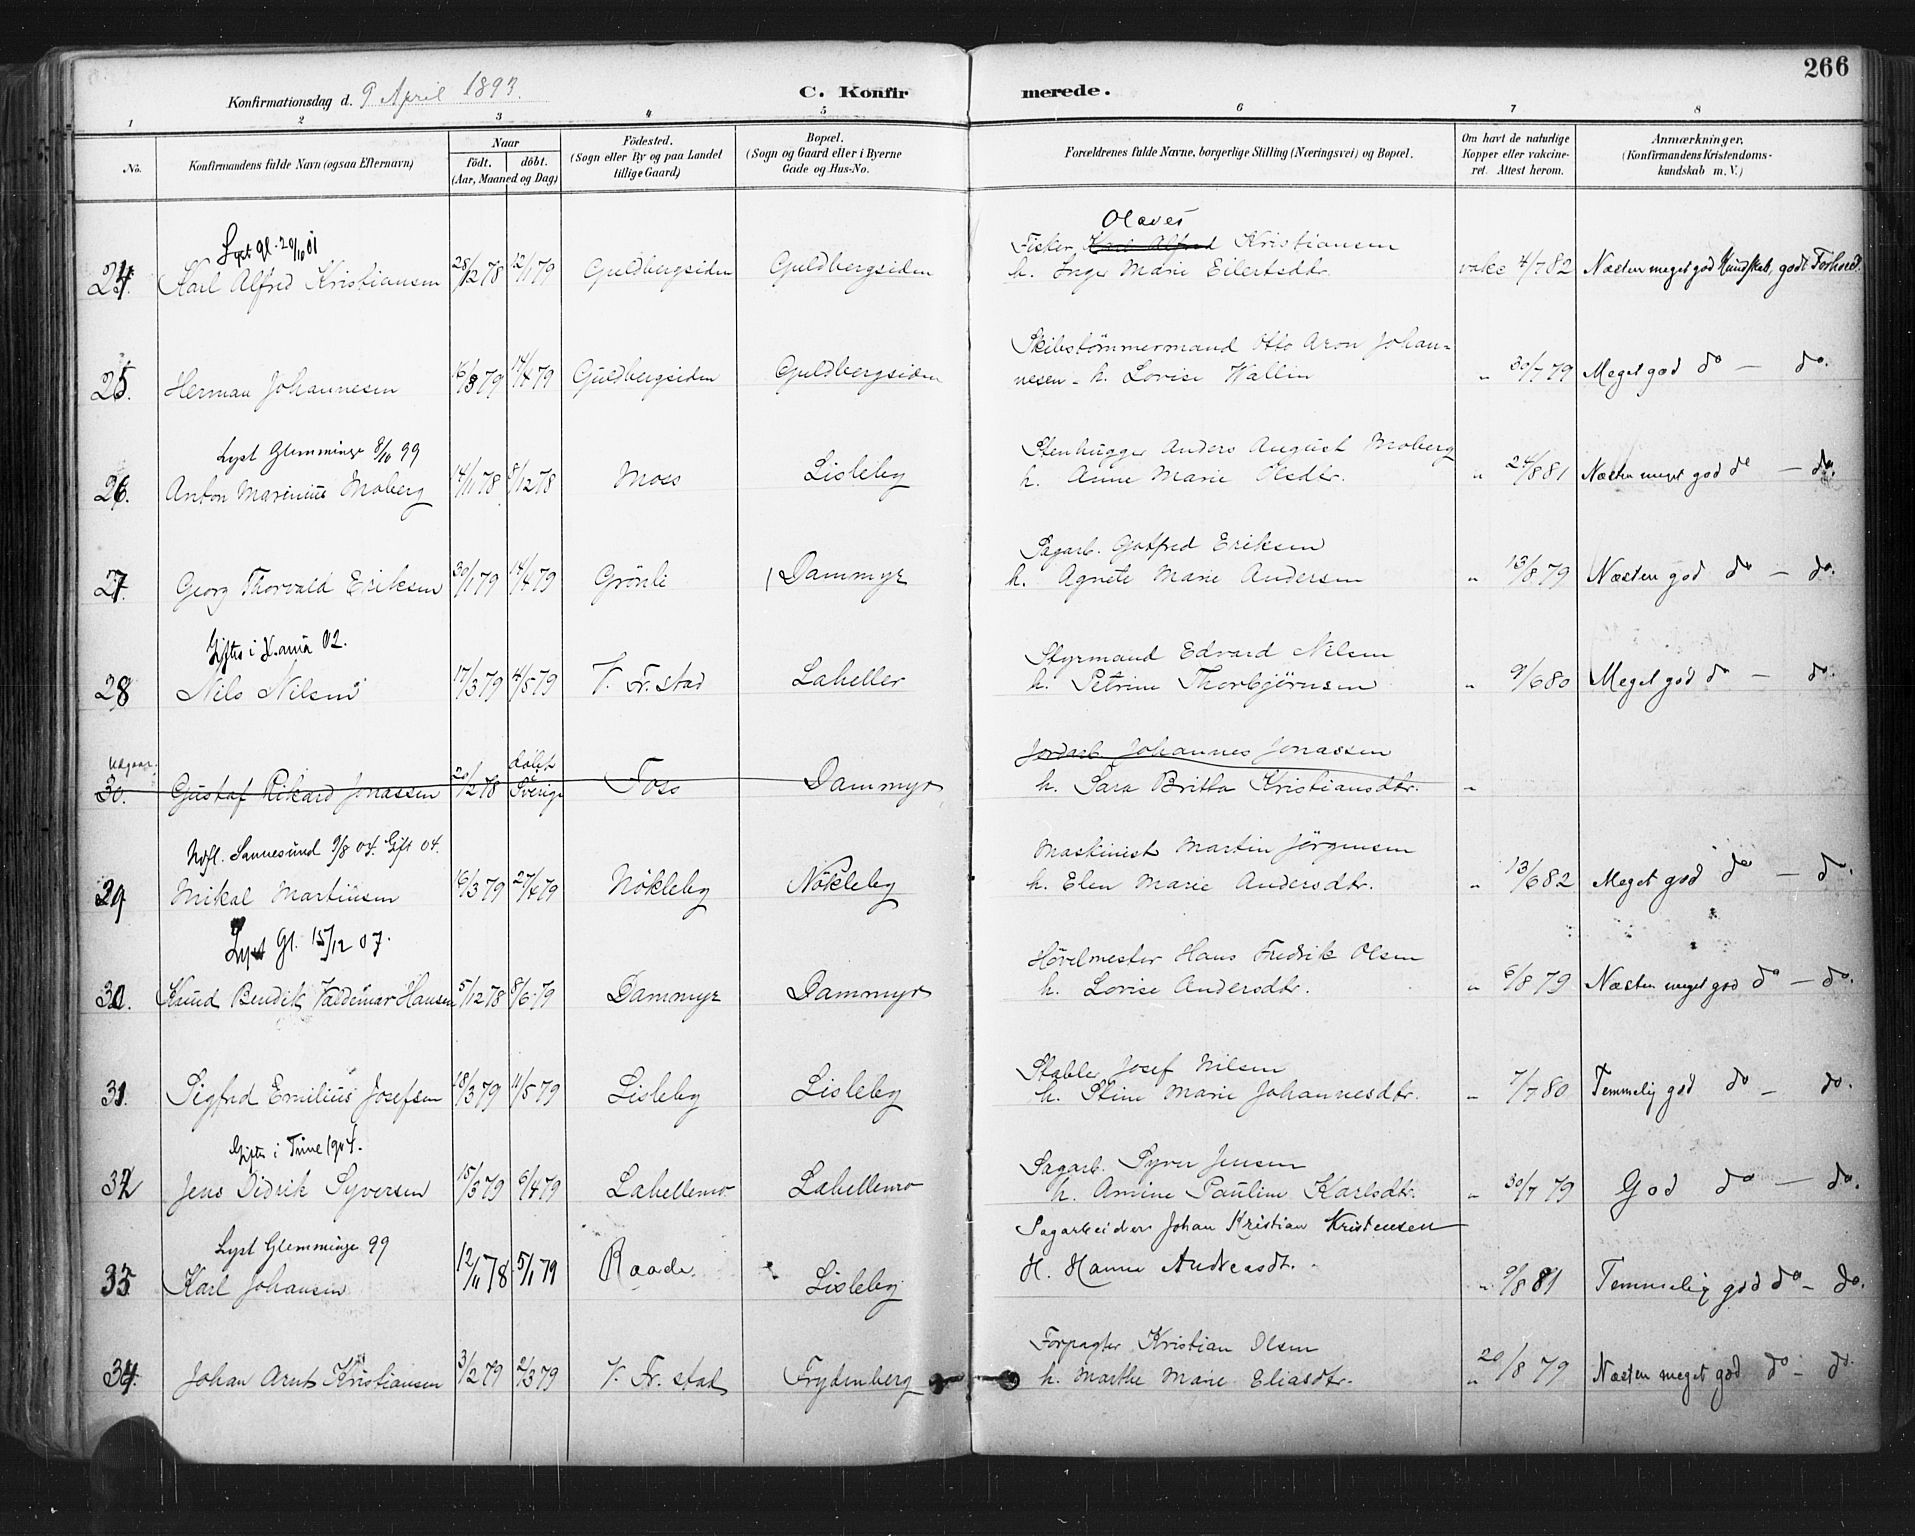 266
Konfirmationsdag d. 9 April 1893. C. Konfirmerede.
1 2 3 4 5 6 7 8
No. Konfirmandens fulde Navn (ogsaa Efternavn) Naar födt, döbt. (Aar, Maaned og Dag) Födested. (Sogn eller By og paa Landet tillige Gaard) Bopæl. (Sogn og Gaard eller i Byerne Gade og Hus-No. Forældrenes fulde Navne, borgerlige Stilling (Næringsvei) og Bopæl. Om havt de naturlige Kopper eller vakcineret. Attest herom. Anmærkninger, (Konfirmandens Kristendomskundskab m. V.)
Lyst Gl. 20/10 01 Olaves
Fisker Karl Alfred Kristiansen
24. Karl Alfred Kristiansen 28/12 78 12/1 79 Guldbergsiden Guldbergsiden h. Inger Marie Eilertsdtr. vakc 4/7 82 Næsten meget god Kundskab, godt Forhold.
Skibstömmermand Otto Aron Johan-
25. Herman Johannesen 16/3 79 14/4 79 Guldbergsiden Guldbergsiden nesen - h. Lovise Wallin " 30/7 79 Meget god do — do.
Lyst Glemminge 8/10 99 Stenhugger Anders August Moberg
26. Anton Marinius Moberg 14/11 78 8/12 78 Moss Lisleby h. Anne Marie Olsdtr. " 24/8 81 Næsten meget god do — do.
Sagarb. Gotfred Eriksen
27. Georg Thorvald Eriksen 30/1 79 14/4 79 Grönli Dammyr h. Agnete Marie Andersen " 13/8 79 Næsten god do — do.
Giftes i X.ania 02. Styrmand Edvard Nilsen
28 Nils Nilsen 17/3 79 4/5 79 V. Fr.stad Laheller h. Petrine Thorbjörnsen " 9/6 80 Meget god do — do.
Udgaar. döbt i Jordarb. Johannes Jonassen
30. Gustaf Rikard Jonassen 20/12 78 Sverige Foss Dammyr h. Sara Britta Kristiansdtr. "
Udfl. Sannesund 9/8 04. Gift 04. Maskinist Martin Jörgensen
29 Mikal Martinsen 16/3 79 27/4 79 Nökleby Nökleby h. Elen Marie Andersdtr. " 13/6 82 Meget god do — do.
Lyst Gl. 15/12 07. Hövelmester Hans Fredrik Olsen
30. Knud Bendik Valdemar Hansen 5/12 78 8/6 79 Dammyr Dammyr h. Lovise Andersdtr. " 6/8 79 Næsten meget god do — do.
Stabler Josef Nilsen
31. Sigfred Emilius Josefsen 18/3 79 11/5 79 Lisleby Lisleby h. Stine Marie Johannesdtr. " 7/7 80 Temmelig god do — do.
Giftes i Tune 1904. Sagarb. Syver Jensen
32 Jens Didrik Syversen 15/3 79 6/4 79 Lahellemo Lahellemo h. Amine Pauline Karlsdtr. " 30/7 79 God do — do.
Lyst Glemminge 99 Sagarbeider Johan Kristian Kristensen
33 Karl Johansen 12/11 78 5/1 79 Raade. Lisleby H. Hanne Andreasdt. " 9/8 81 Temmelig god do — do.
Forpagter Kristian Olsen
34. Johan Arnt Kristiansen 3/2 79 2/3 79 V. Fr. stad Frydenberg h. Marthe Marie Eliasdtr. " 20/8 79 Næsten meget god do — do.